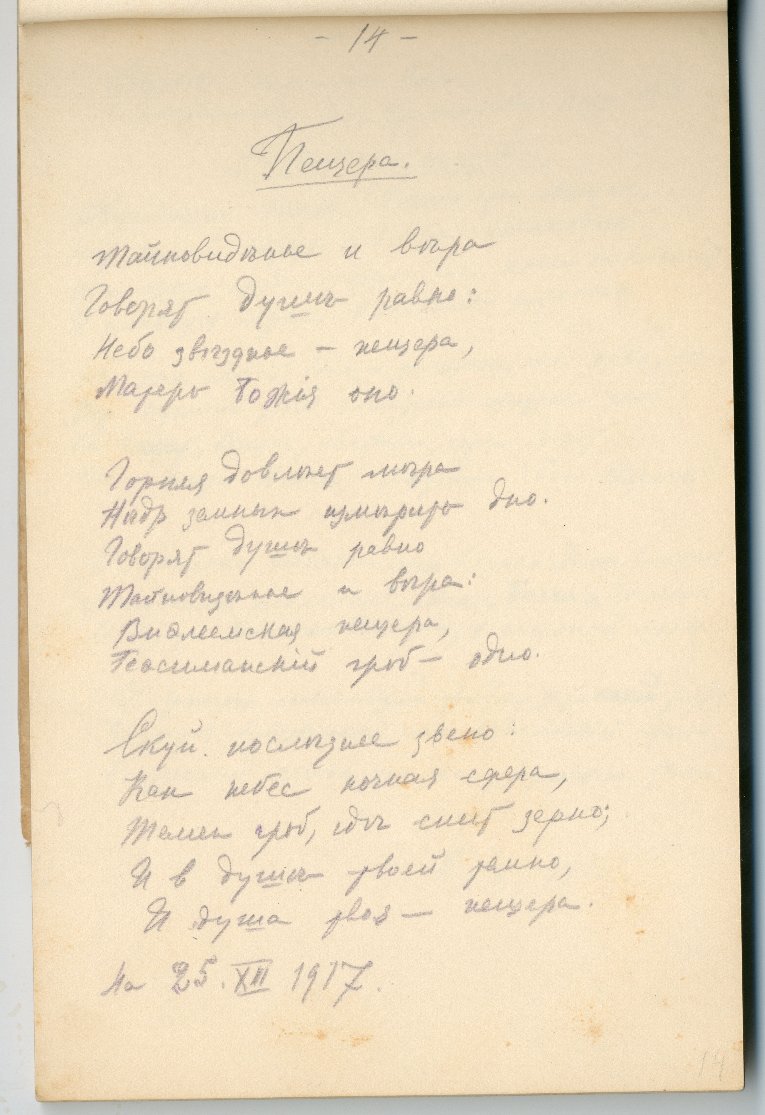 - 14 -
Пещера.
Тайновидѣнье и вѣра
Говорят душѣ равно:
Небо звѣздное – пещера,
Матерь Божія оно.
Горняя довлѣет мѣра
Нѣдр земных измѣрить дно.
Говорят душѣ равно
Тайновидѣнье и вѣра:
Виѳлеемская пещера,
Геѳсиманскій гроб – одно.
Скуй послѣднее звено:
Как небес ночная сфера,
Темен гроб, гдѣ спит зерно;
И в душѣ твоей темно,
И душа твоя – пещера.
На 25. XII 1917.
14